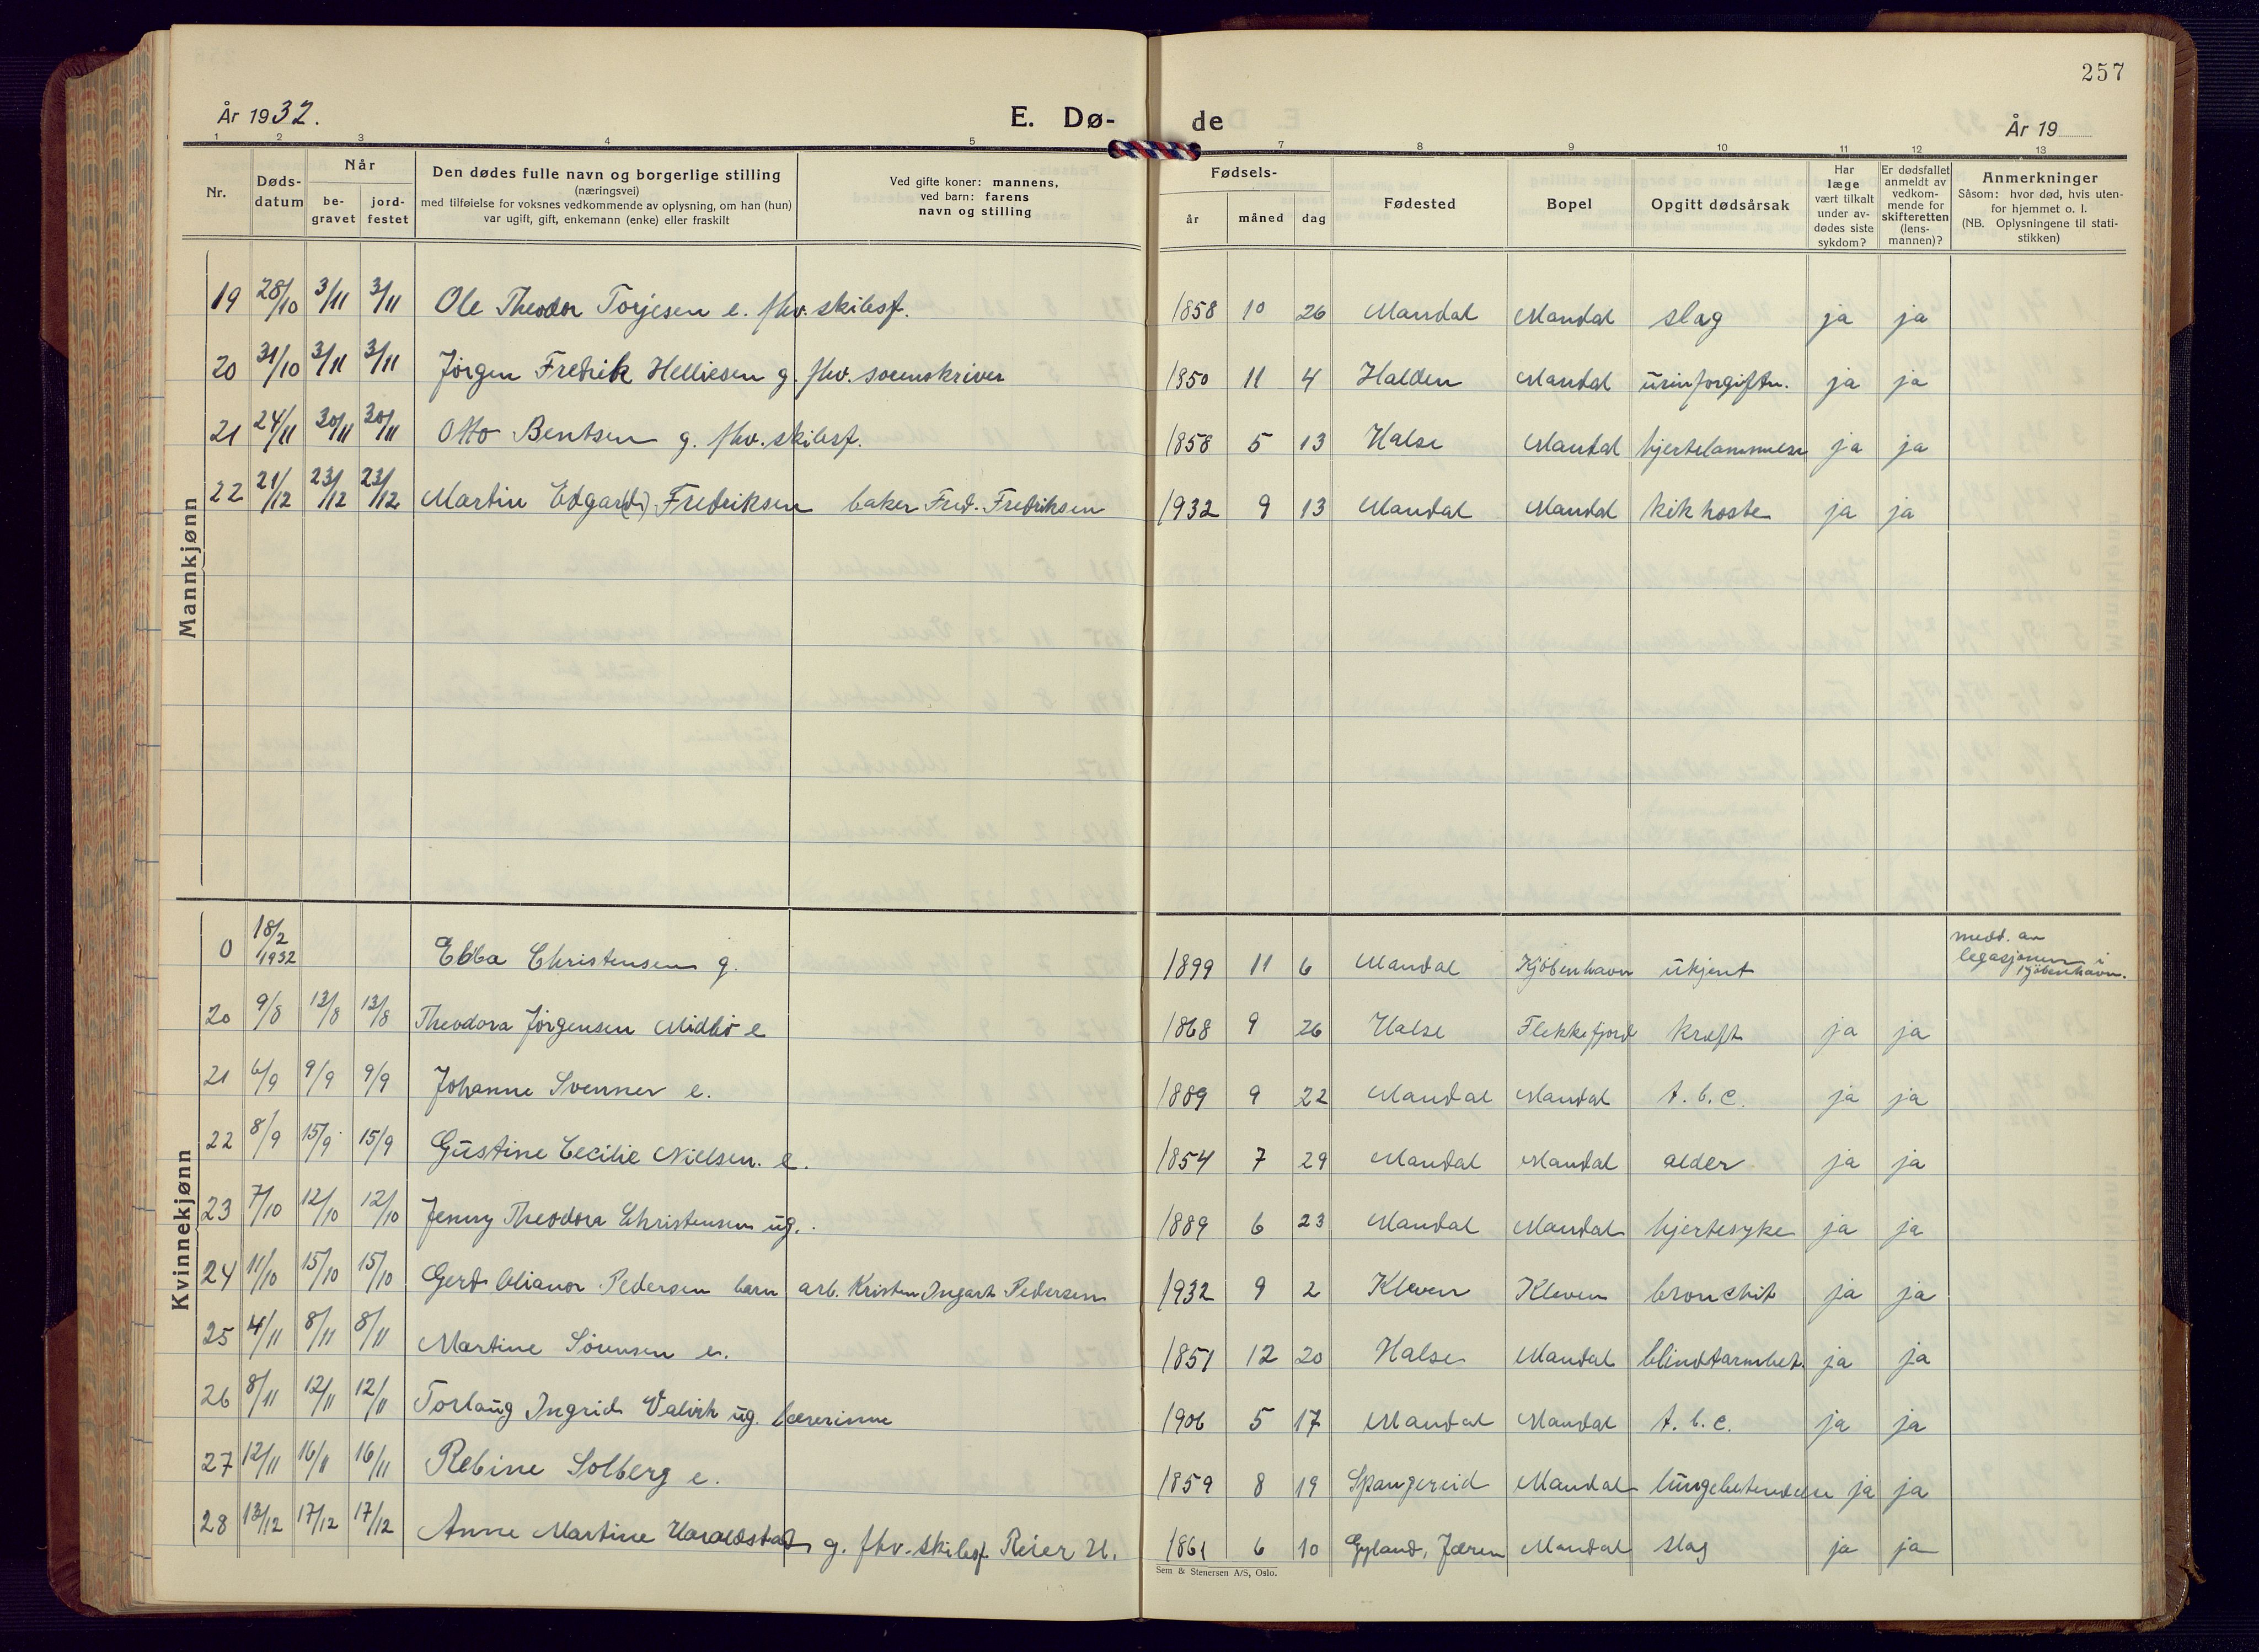 257
År 1932.
E. Dø- de
År 19
1 2 3 4 5 7 8 9 10 11 12 13
Nr.
Døds-
datum
Når
be-
gravet
jord-
festet
Den dødes fulle navn og borgerlige stilling
(næringsvei)
med tilføielse for voksnes vedkommende av oplysning, om han (hun)
var ugift, gift, enkemann (enke) eller fraskilt
Ved gifte koner: mannens,
ved barn: farens
navn og stilling
Fødsels-
år måned dag
Fødested
Bopel
Opgitt dødsårsak
Har
læge
vært tilkalt
under av-
dødes siste
sykdom?
Er dødsfallet
anmeldt av
vedkom-
mende for
skifteretten
(lens-
mannen)?
Anmerkninger
Såsom: hvor død, hvis uten-
for hjemmet o. l.
(NB. Oplysningene til stati-
stikken)
Mannkjønn
19 28/10 3/11 3/11 Ole Theodor Torjesen e. fhv. skibsf. 1858 10 26 Mandal Mandal slag ja ja
20 31/10 3/11 3/11 Jörgen Fredrik Helliesen g. fhv. sorenskriver 1850 11 4 Halden Mandal urinforgiftn. ja ja
21 24/11 30/11 30/11 Otto Bentsen g. fhv. skibsf. 1858 5 13 Halse Mandal hjertelammelse ja ja
22 21/12 23/12 23/12 Martin Edgar(d) Fredriksen baker Fred. Fredriksen 1932 9 13 Mandal Mandal kikhoste ja ja
Kvinnekjønn
0 18/2 1932 Ebba Christensen g. 1899 11 6 Mandal Kjöbenhavn ukjent medd. av
legasjonen i
Kjöbenhavn.
20 9/8 13/8 13/8 Theodora Jörgensen Midbö e 1868 9 26 Halse Flekkefjord kreft ja ja
21 6/9 9/9 9/9 Johanne Svenner e. 1889 9 22 Mandal Mandal t.b.c. ja ja
22 8/9 15/9 15/9 Gustine Cecilie Nielsen. e. 1854 7 29 Mandal Mandal alder ja ja
23 7/10 12/10 12/10 Jenny Theodora Christensen ug. 1889 6 23 Mandal Mandal hjertesyke ja ja
24 11/10 15/10 15/10 Gerd Pedersen barn arb. Kristen Ingart Pedersen 1932 9 2 Kleven Kleven bronchit ja ja
25 4/11 8/11 8/11 Martine Sörensen e. 1851 12 20 Halse Mandal blindtarmbet. ja ja
26 8/11 12/11 12/11 Torlaug Ingrid Valvik ug. lærerinne 1906 5 17 Mandal Mandal t.b.c. ja ja
27 12/11 16/11 16/11 Rebine Solberg e. 1859 8 19 Spangereid Mandal lungebetendelse ja ja
28 13/12 17/12 17/12 Anne Martine Haraldstad g. fhv. skibsf. Reier H. 1861 6 10 Gyland, Jæren Mandal slag ja ja
Sem & Stenersen A/S, Oslo.